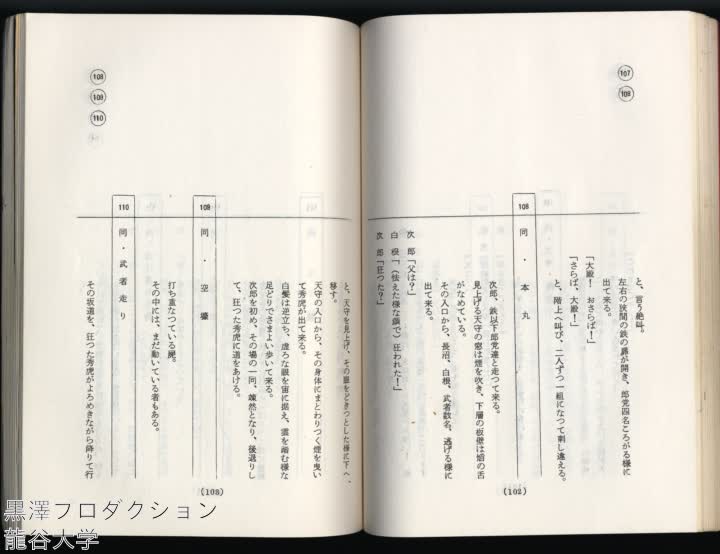 107
108
と、言う絶叫。
左右の狭間の鉄の扉が開き、郎党四名ころがる様に
出て来る。
「大殿！　おさらば！」
「さらば、大殿！」
と、階上へ叫び、二人ずつ一組になつて刺し違える。
108　同・本丸
次郎、鉄以下郎党達と走つて来る。
見上げる天守の窓は煙を吹き、下層の板壁は焔の舌
がなめている。
その入口から、長沼、白根、武者数名、逃げる様に
出て来る。
次　郎「父は？」
白　根「（怯えた様な顔で）狂われた！」
次　郎「狂つた？」
(102)
108
109
110
と、天守を見上げ、その眼をどきつとした様に下へ
移す。
天守の入口から、その身体にまとわりつく煙を曳い
て秀虎が出て来る。
白髪は逆立ち、虚ろな眼を宙に据え、雲を踏む様な
足どりでさまよい歩いて来る。
次郎を初め、その場の一同、竦然となり、後退りし
て、狂つた秀虎に道をあける。
109　同・空濠
打ち重なつている屍。
その中には、まだ動いている者もある。
110　同・武者走り
その坂道を、狂つた秀虎がよろめきながら降りて行
(103)
黒澤プロダクション
龍谷大学